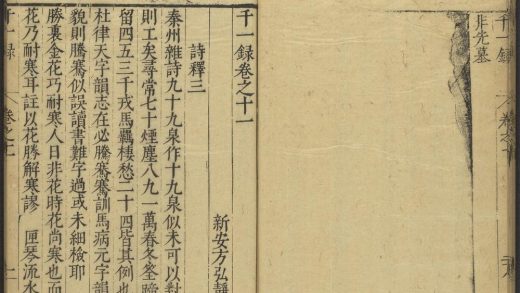 千一録 卷之十
非先墓
千一録卷之十一
新安方弘靜
詩釋三
秦州雜詩九十九泉作十九泉似未可以對
則工矣尋常七十煙塵八九一萬春冬
留四五三千戎馬羈棲愁二十四皆其例也
杜律天字韻志在必騰騫騫訓馬病元字韻
貌則騰騫似誤讀書難字過或未細檢耶
勝裏金花巧耐寒人日非花時花尚寒也而
花乃耐寒耳註以花勝解寒謬 匣琴流水
千一録 卷之十一 一